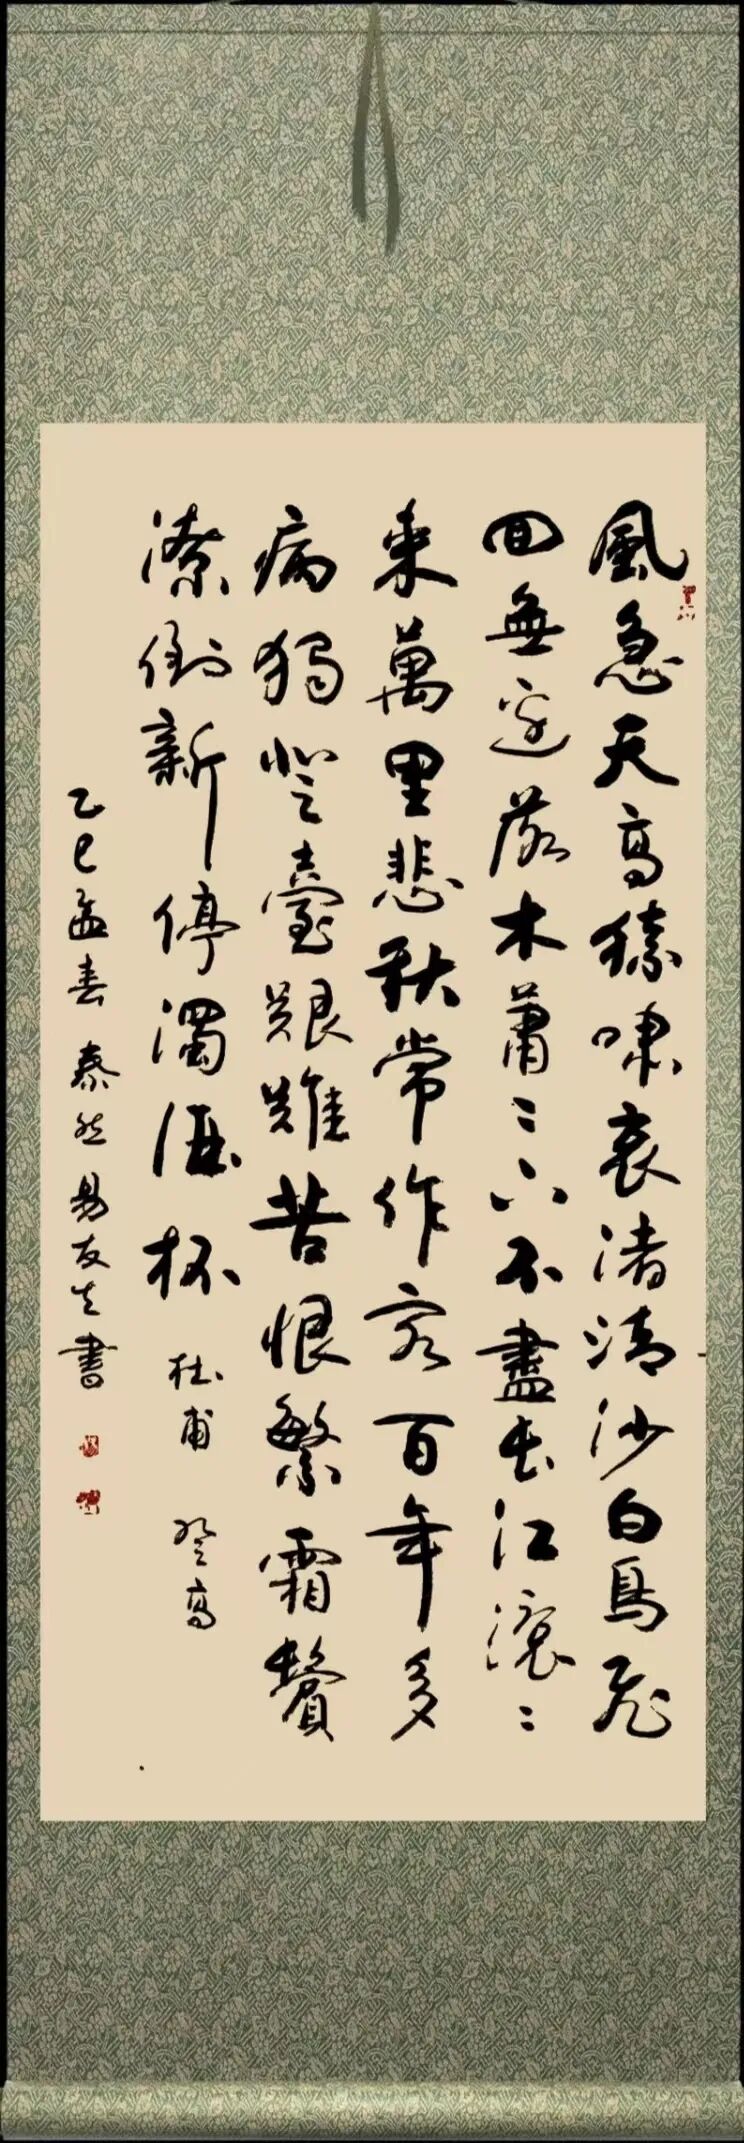 風急天高猿嘯哀渚清沙白鳥飛
回無邊落木蕭〻下不盡長江滾〻
來萬里悲秋常作客百年多
病獨登臺艱難苦恨繁霜鬢
潦倒新停濁酒杯 杜甫 登高
乙巳孟春 泰然 易友生書